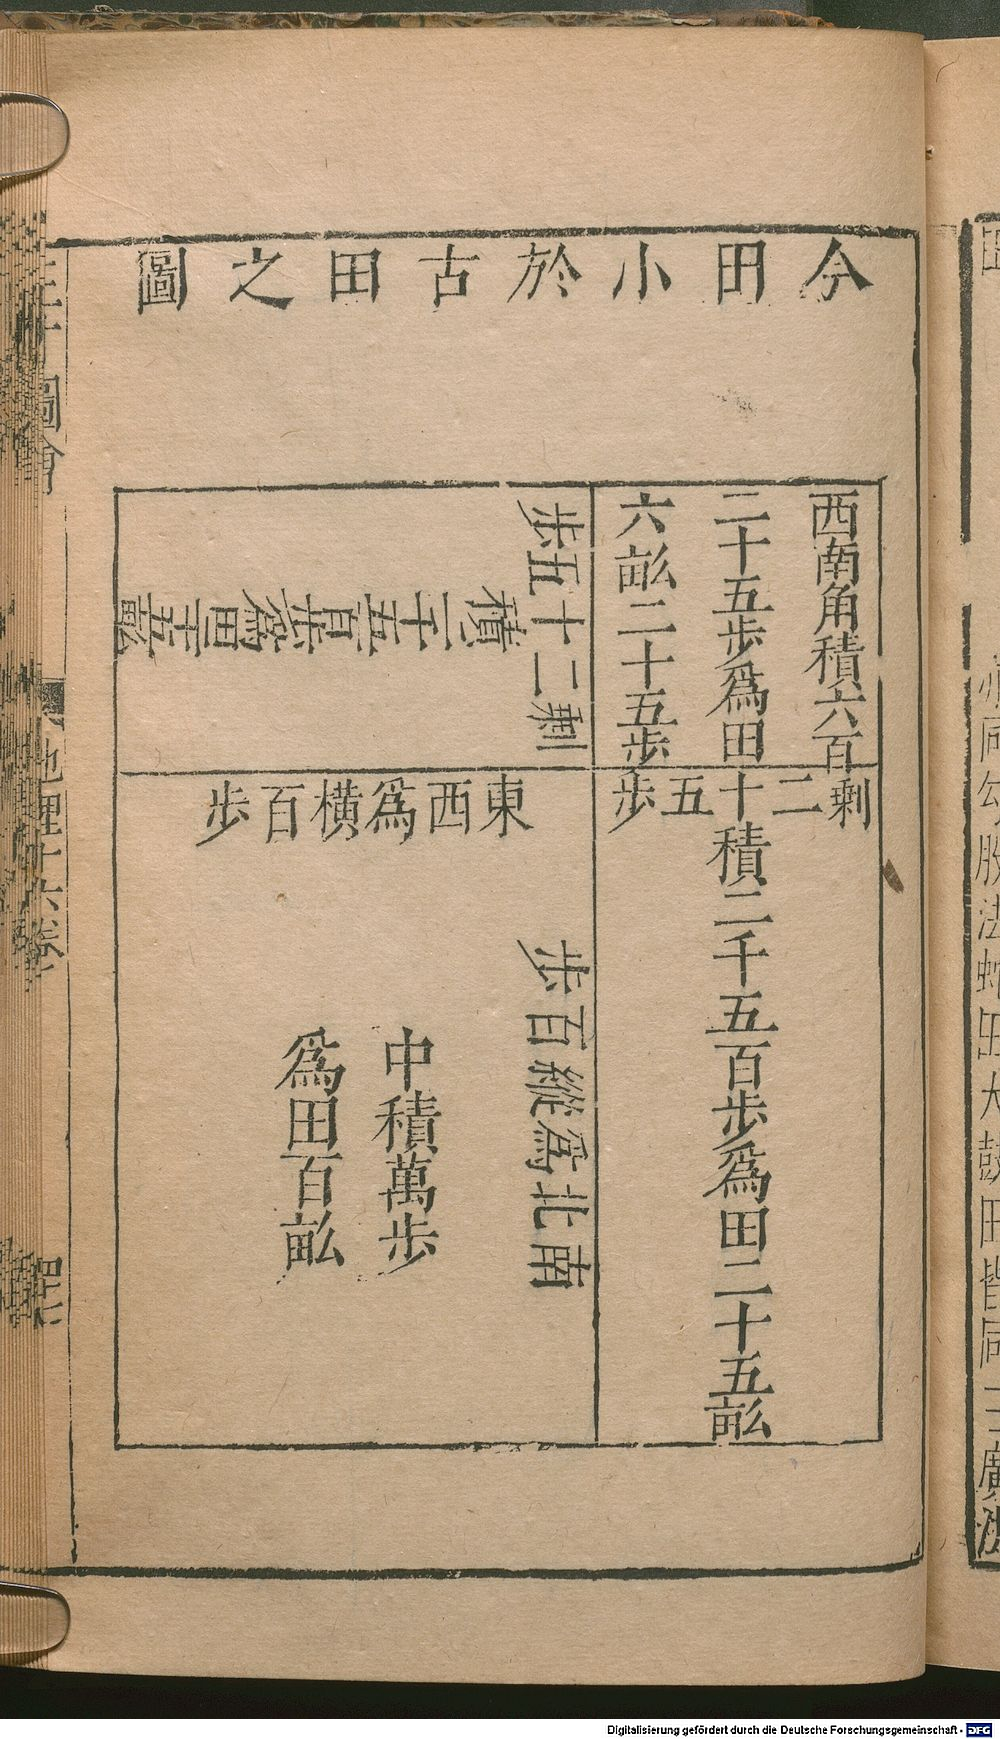 今田小於古田之圖
西南角積六百
二十五步爲田
六畆二十五步
剩二十五步
積二千五百步爲田二十五畆
剩二十五步
積二千五百步爲田二十五畝
東西爲橫百步
南北爲縱百步
中積萬步
爲田百畆
圖會
地理十六卷
同勾股法蛇田大鼓田皆同二廣法
Digitalisierung gefördert durch die Deutsche Forschungsgemeinschaft - DFG